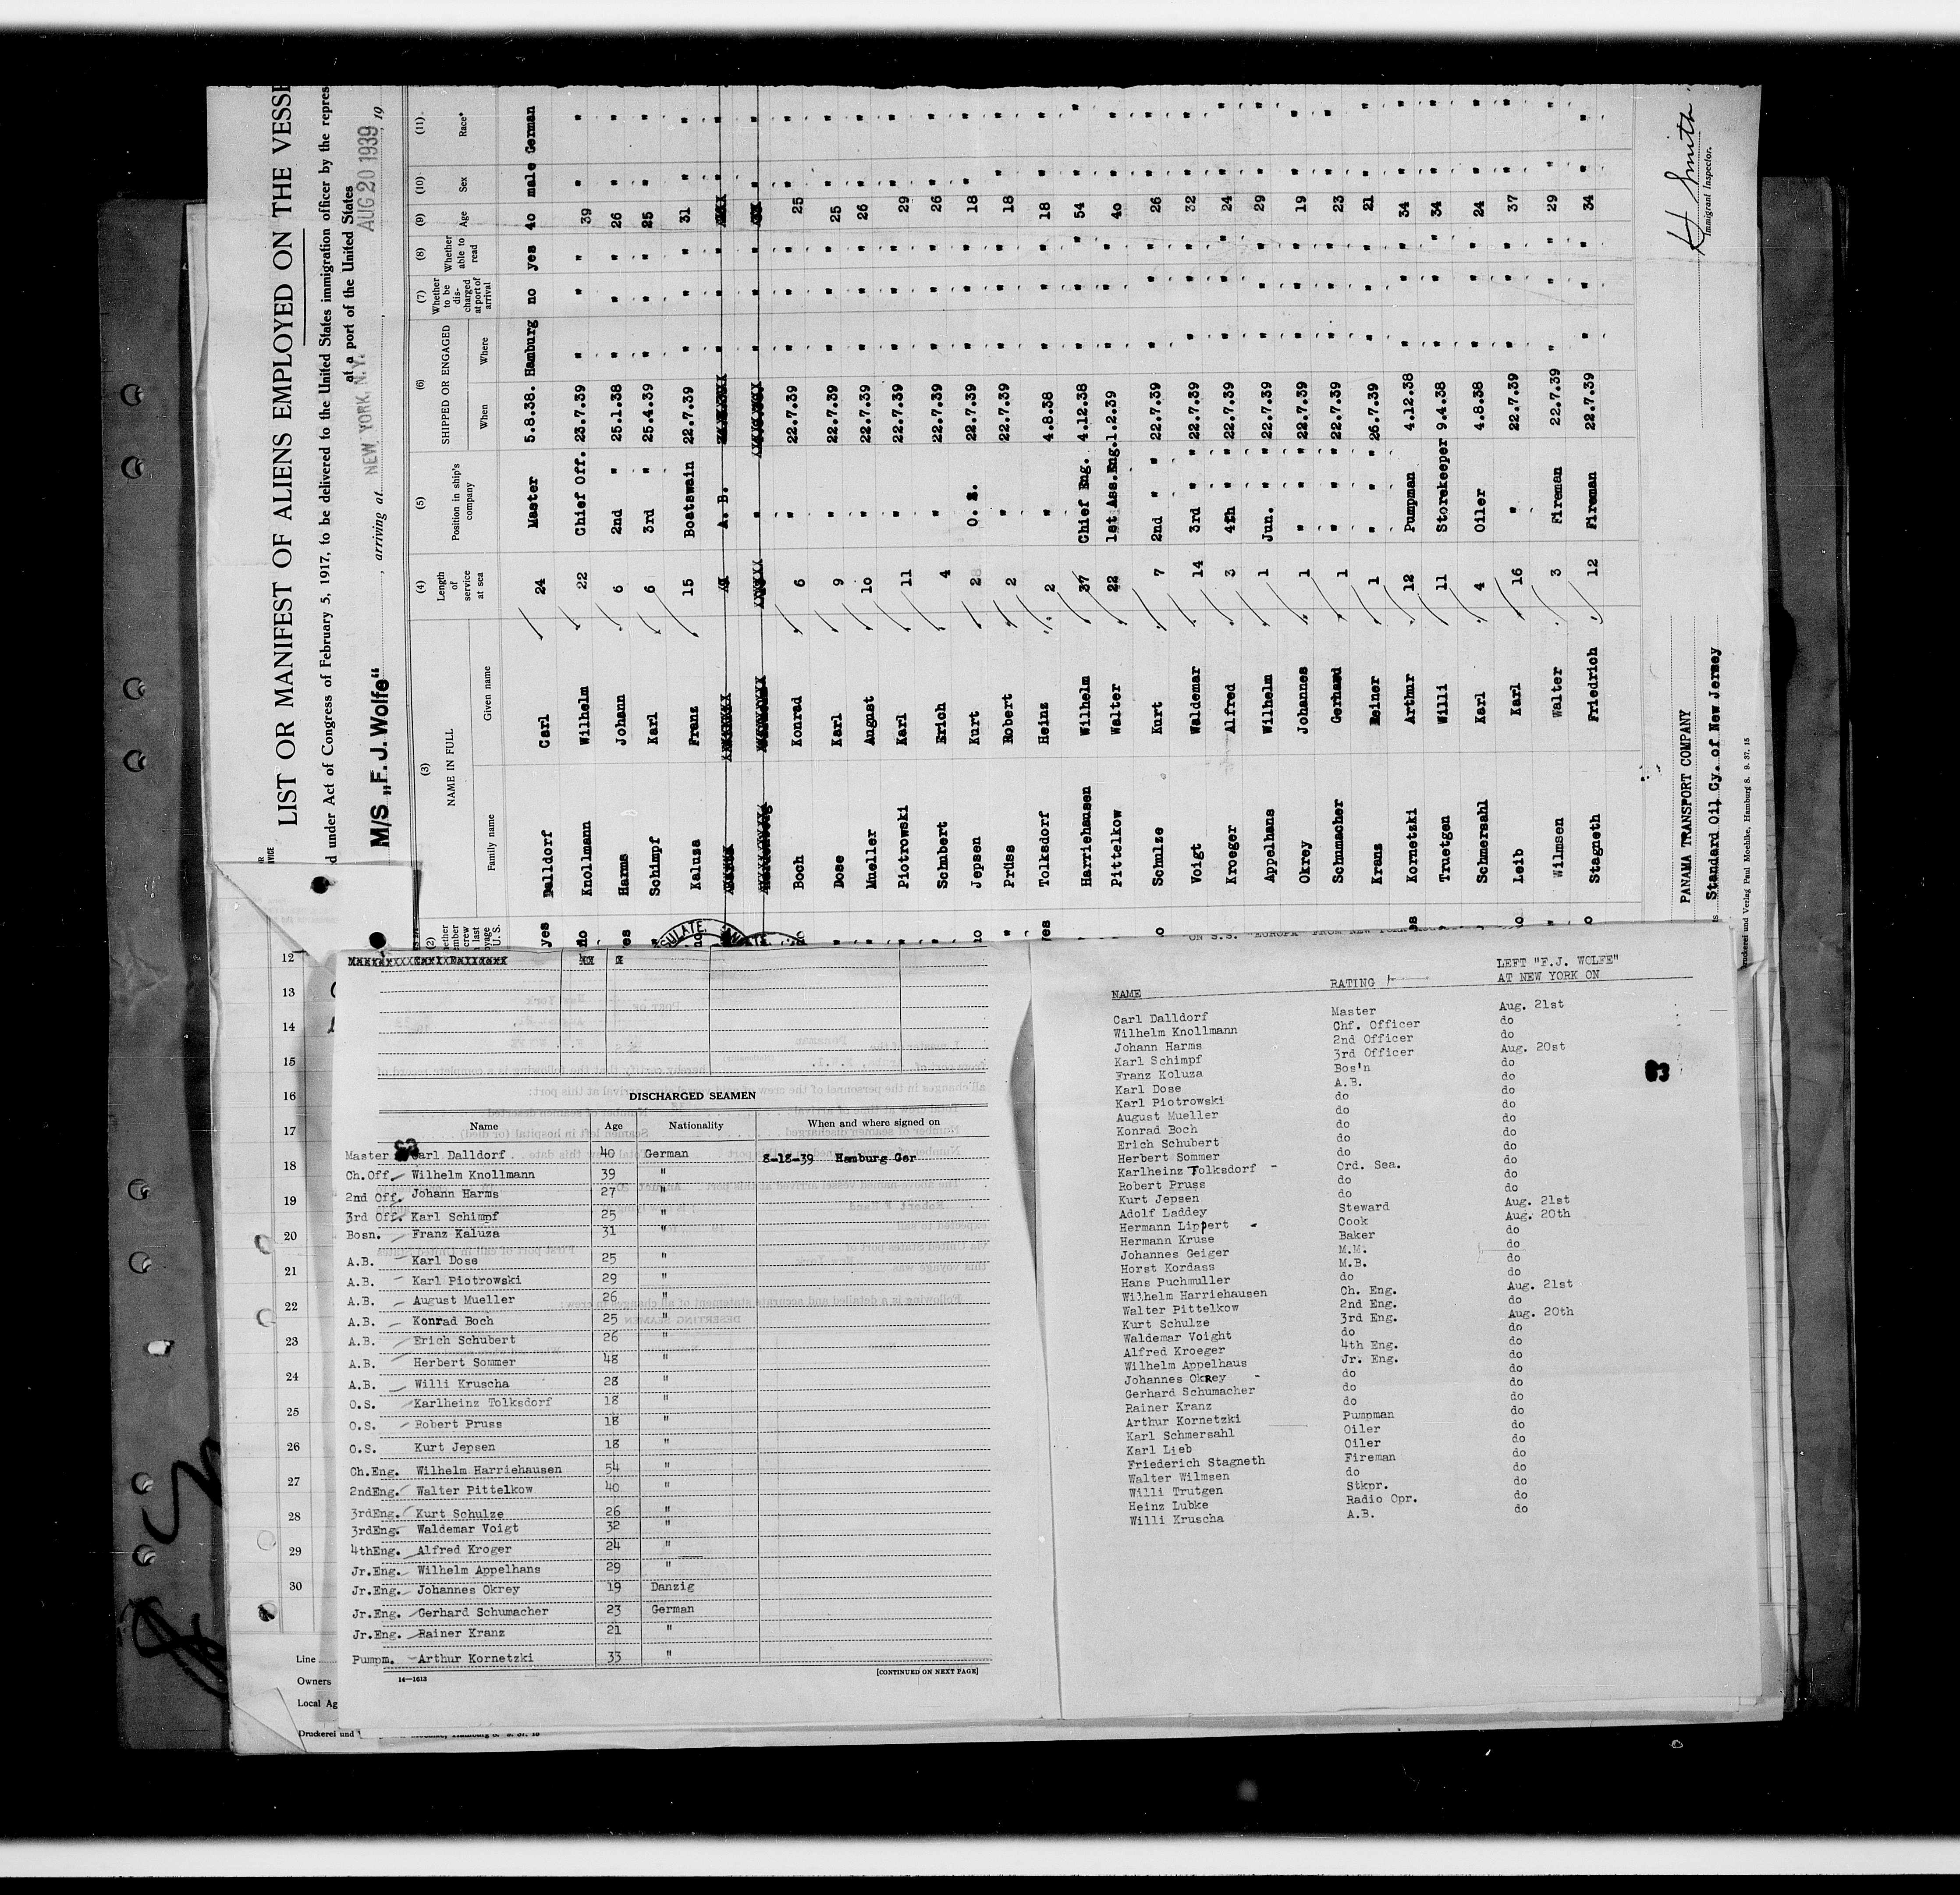 LIST OR MANIFEST OF ALIENS EMPLOYED ON THE VESSE
d under Act of Congress of February 5, 1917, to be delivered to the United States immigration officer by the repres
at a port of the United States
M/S „F. J. Wolfe“ , arriving at NEW YORK, N.Y. , AUG 20 1939, 19
(2) (3) (4) (5) (6) (7) (8) (9) (10) (11)
NAME IN FULL Length of service at sea Position in ship's company SHIPPED OR ENGAGED Whether to be discharged at port of arrival Whether able to read Age Sex Race*
Family name Given name When Where
yes Dalldorf Carl 24 Master 5.8.38. Hamburg no yes 40 male German
no Knollmann Wilhelm 22 Chief Off. 23.7.39 " " " 39 " "
Harms Johann 6 2nd " 25.1.38 " " " 26 " "
Schimpf Karl 6 3rd " 25.4.39 " " " 25 " "
Kaluza Franz 15 Boatswain 22.7.39 " " " 31 " "
A. B. " " " " "
" " " " " "
Boch Konrad 6 " 22.7.39 " " " 25 " "
Dose Karl 9 " 22.7.39 " " " 25 " "
Mueller August 10 " 22.7.39 " " " 26 " "
Piotrowski Karl 11 " 22.7.39 " " " 29 " "
Schubert Erich 4 " 22.7.39 " " " 26 " "
Jepsen Kurt 2 O. S. 22.7.39 " " " 18 " "
Prüss Robert 2 " 22.7.39 " " " 18 " "
Tolksdorf Heinz 2 " 4.8.38 " " " 18 " "
Harriehausen Wilhelm 37 Chief Eng. 4.12.38 " " " 54 " "
Pittelkow Walter 22 1st Ass.Eng. 1.2.39 " " " 40 " "
Schulze Kurt 7 2nd " " 22.7.39 " " " 26 " "
Voigt Waldemar 14 3rd " " 22.7.39 " " " 32 " "
Kroeger Alfred 3 4th " " 22.7.39 " " " 24 " "
Appelhans Wilhelm 1 Jun. " " 22.7.39 " " " 29 " "
Okrey Johannes 1 " " " 22.7.39 " " " 19 " "
Schumacher Gerhard 1 " " " 22.7.39 " " " 23 " "
Kranz Reiner 1 " " " 26.7.39 " " " 21 " "
Kornetzki Arthur 12 Pumpman 4.12.38 " " " 34 " "
Truetgen Willi 11 Storekeeper 9.4.38 " " " 34 " "
Schmersahl Karl 4 Oiler 4.8.38 " " " 24 " "
Leib Karl 16 " 22.7.39 " " " 37 " "
Wilmsen Walter 3 Fireman 22.7.39 " " " 29 " "
Stagneth Friedrich 12 Fireman 22.7.39 " " " 34 " "
PANAMA TRANSPORT COMPANY
Standard Oil Cy. of New Jersey
H Smith
Immigrant Inspector.
ruckerei und Verlag Paul Moehlke, Hamburg 8. 9. 37. 15
12
13
14
15
16
17
18
19
20
21
22
23
24
25
26
27
28
29
30
Line
Owners
Local Ag
Druckerei und
DISCHARGED SEAMEN
Name Age Nationality When and where signed on
Master Carl Dalldorf 40 German 8-18-39 Hamburg Ger
Ch.Off. Wilhelm Knollmann 39 "
2nd Off. Johann Harms 27 "
3rd Off. Karl Schimpf 25 "
Bosn. Franz Kaluza 31 "
A.B. Karl Dose 25 "
A.B. Karl Piotrowski 29 "
A.B. August Mueller 26 "
A.B. Konrad Boch 25 "
A.B. Erich Schubert 26 "
A.B. Herbert Sommer 48 "
A.B. Willi Kruscha 28 "
O.S. Karlheinz Tolksdorf 18 "
O.S. Robert Pruss 18 "
O.S. Kurt Jepsen 18 "
Ch.Eng. Wilhelm Harriehausen 54 "
2ndEng. Walter Pittelkow 40 "
3rdEng. Kurt Schulze 26 "
3rdEng. Waldemar Voigt 32 "
4thEng. Alfred Kroger 24 "
Jr.Eng. Wilhelm Appelhans 29 "
Jr.Eng. Johannes Okrey 19 Danzig
Jr.Eng. Gerhard Schumacher 23 German
Jr.Eng. Rainer Kranz 21 "
Pumpm. Arthur Kornetzki 33 "
14—1613 [CONTINUED ON NEXT PAGE]
ON S.S. "EUROPA" FROM NEW YORK
NAME RATING LEFT "F.J. WOLFE" AT NEW YORK ON
Carl Dalldorf Master Aug. 21st
Wilhelm Knollmann Chf. Officer do
Johann Harms 2nd Officer do
Karl Schimpf 3rd Officer Aug. 20st
Franz Koluza Bos'n do
Karl Dose A.B. do
Karl Piotrowski do do
August Mueller do do
Konrad Boch do do
Erich Schubert do do
Herbert Sommer do do
Karlheinz Tolksdorf - Ord. Sea. do
Robert Pruss do do
Kurt Jepsen do do
Adolf Laddey Steward Aug. 21st
Hermann Lippert - Cook Aug. 20th
Hermann Kruse Baker do
Johannes Geiger M.M. do
Horst Kordass M.B. do
Hans Puchmuller do do
Wilhelm Harriehausen Ch. Eng. Aug. 21st
Walter Pittelkow 2nd Eng. do
Kurt Schulze 3rd Eng. Aug. 20th
Waldemar Voight do do
Alfred Kroeger 4th Eng. do
Wilhelm Appelhaus Jr. Eng. do
Johannes Okrey - do do
Gerhard Schumacher do do
Rainer Kranz do do
Arthur Kornetzki Pumpman do
Karl Schmersahl Oiler do
Karl Lieb Oiler do
Friederich Stagneth Fireman do
Walter Wilmsen do do
Willi Trutgen Stkpr. do
Heinz Lubke Radio Opr. do
Willi Kruscha A.B. do